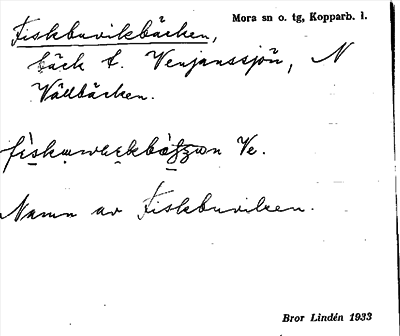 Mora sn o. tg, Kopparb. l.
Fiskbuvikbäcken,
bäck t. Venjanssjön, N
Vållbäcken.
Ve.
Namn av Fiskbuviken.
Bror Lindén 1933